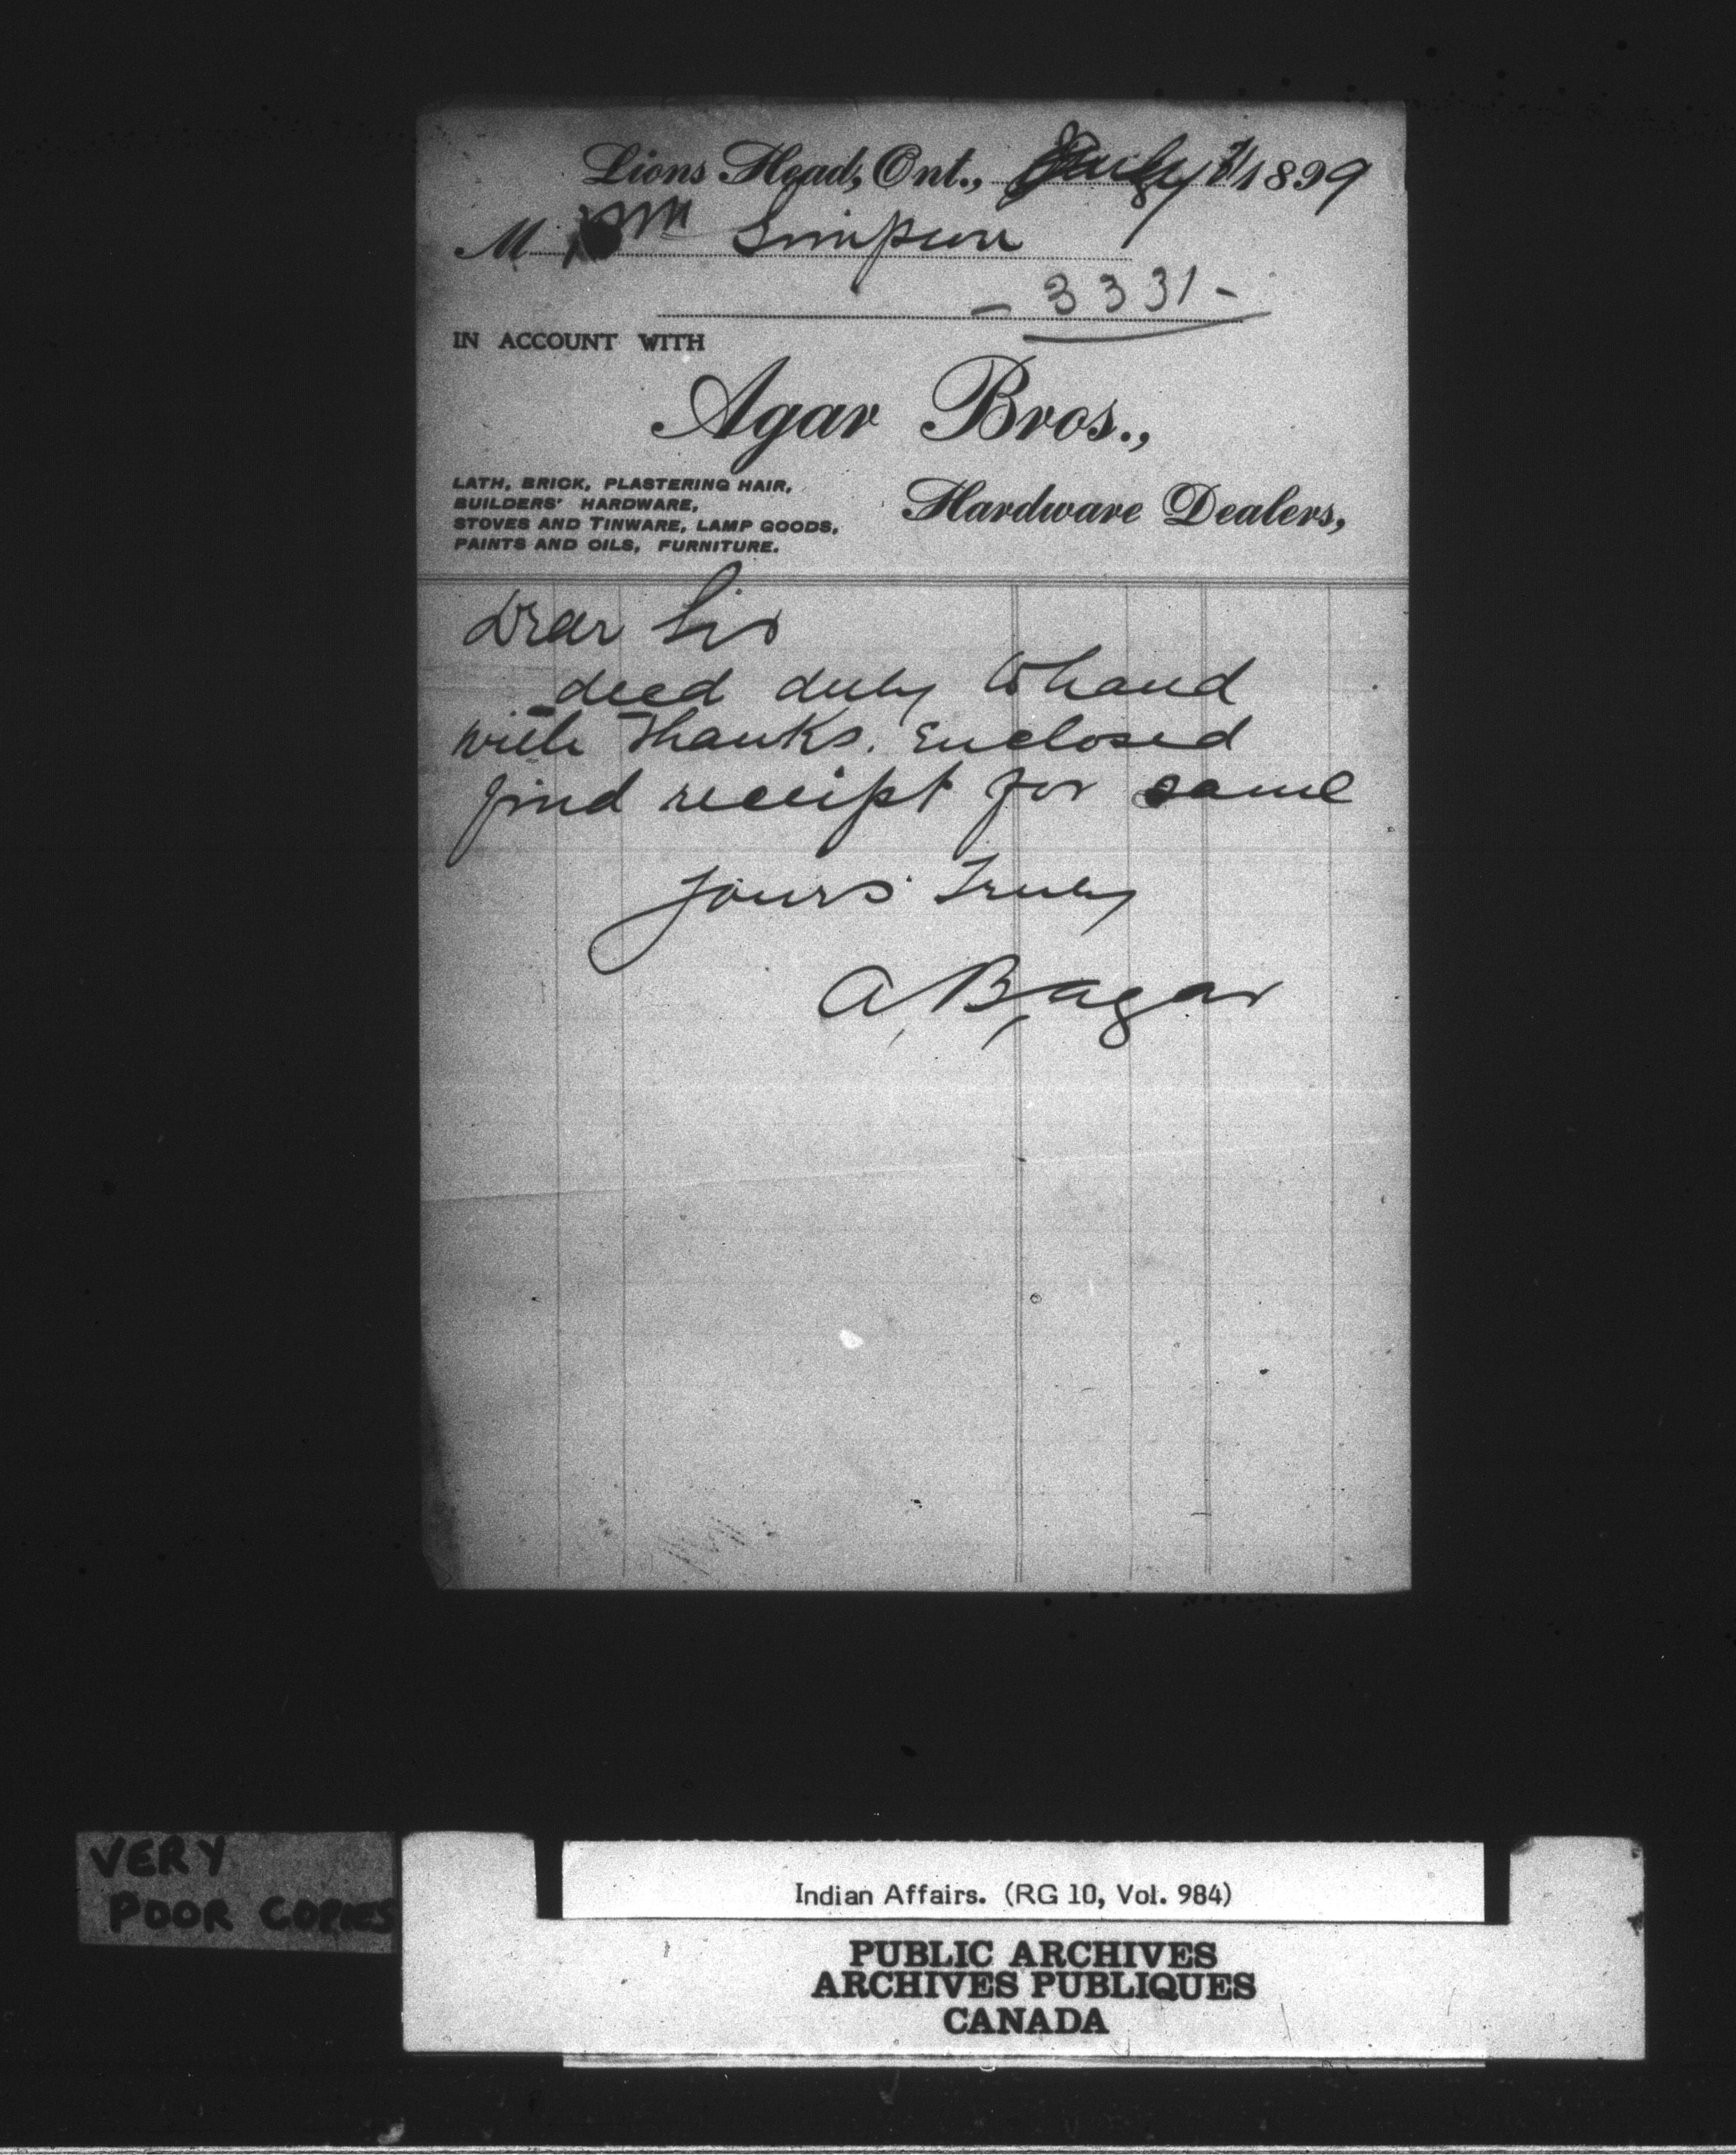 Lions Head, Ont., July 7/1899
M Wm Simpson
- 3331 -
IN ACCOUNT WITH
Agar Bros.,
LATH, BRICK, PLASTERING HAIR,
BUILDERS' HARDWARE,
STOVES AND TINWARE, LAMP GOODS,
PAINTS AND OILS, FURNITURE.
Hardware Dealers,
Dear Sir
deed duly to hand
with Thanks. Enclosed
find receipt for same
Yours Truly
A, B, Agar
VERY
POOR COPIES
Indian Affairs. (RG 10, Vol. 984)
PUBLIC ARCHIVES
ARCHIVES PUBLIQUES
CANADA